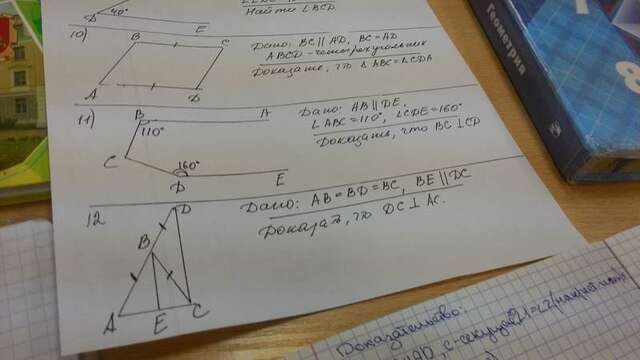 40°
D
E
Найти ∠BCD.
10)
B
C
A
D
Дано: BC || AD, BC = AD
ABCD - четырехугольник
Доказать, что Δ ABC = Δ CDA
11)
B
A
110°
C
160°
D
E
Дано: AB || DE,
∠ ABC = 110°, ∠ CDE = 160°
Доказать, что BC ⊥ CD
12
D
B
A
E
C
Дано: AB = BD = BC, BE || DC
Доказать, что DC ⊥ AC.
Геометрия
8
Доказательство: